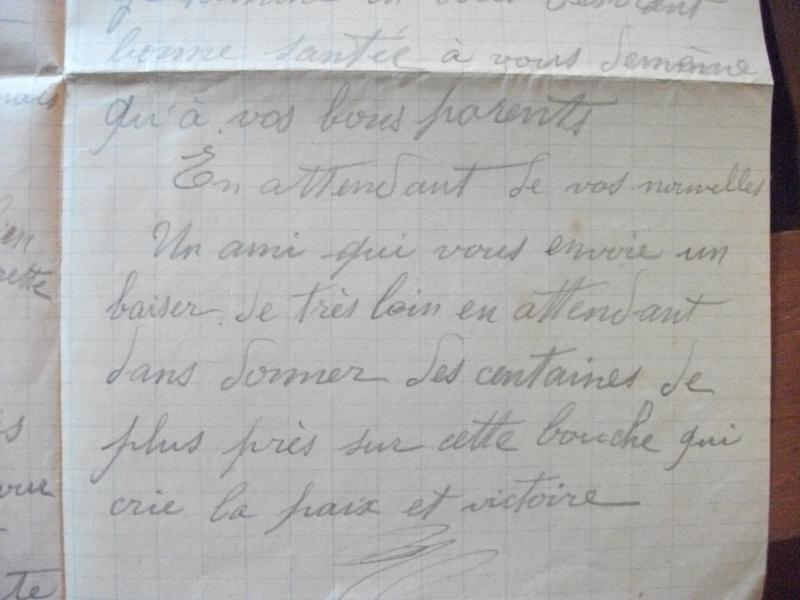 je termine en vous
bonne santée à vous demême
qu'à vos bons parents
En attendant de vos nouvelles
Un ami qui vous envoie un
baiser de très loin en attendant
dans donner des centaines de
plus près sur cette bouche qui
crie la paix et victoire